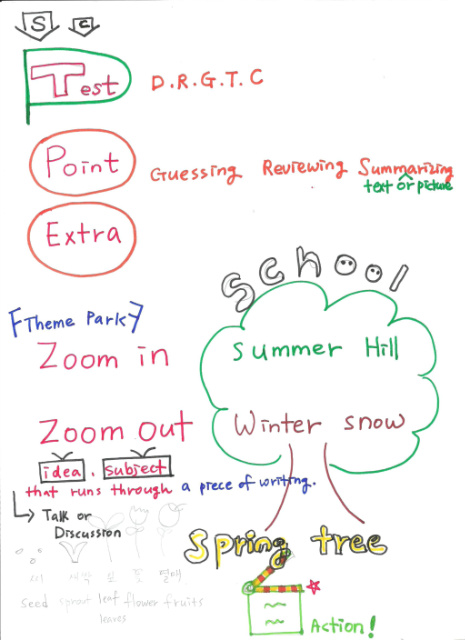 S C
Test D.R.G.T.C
Point Guessing Reviewing Summarizing
text or picture
Extra
School
Theme Park
Zoom in
Summer Hill
Zoom out
Winter snow
idea, subject
that runs through a piece of writing.
Talk or
Discussion
Spring tree
씨 새싹 잎 꽃 열매
seed sprout leaf flower fruits
leaves
Action!